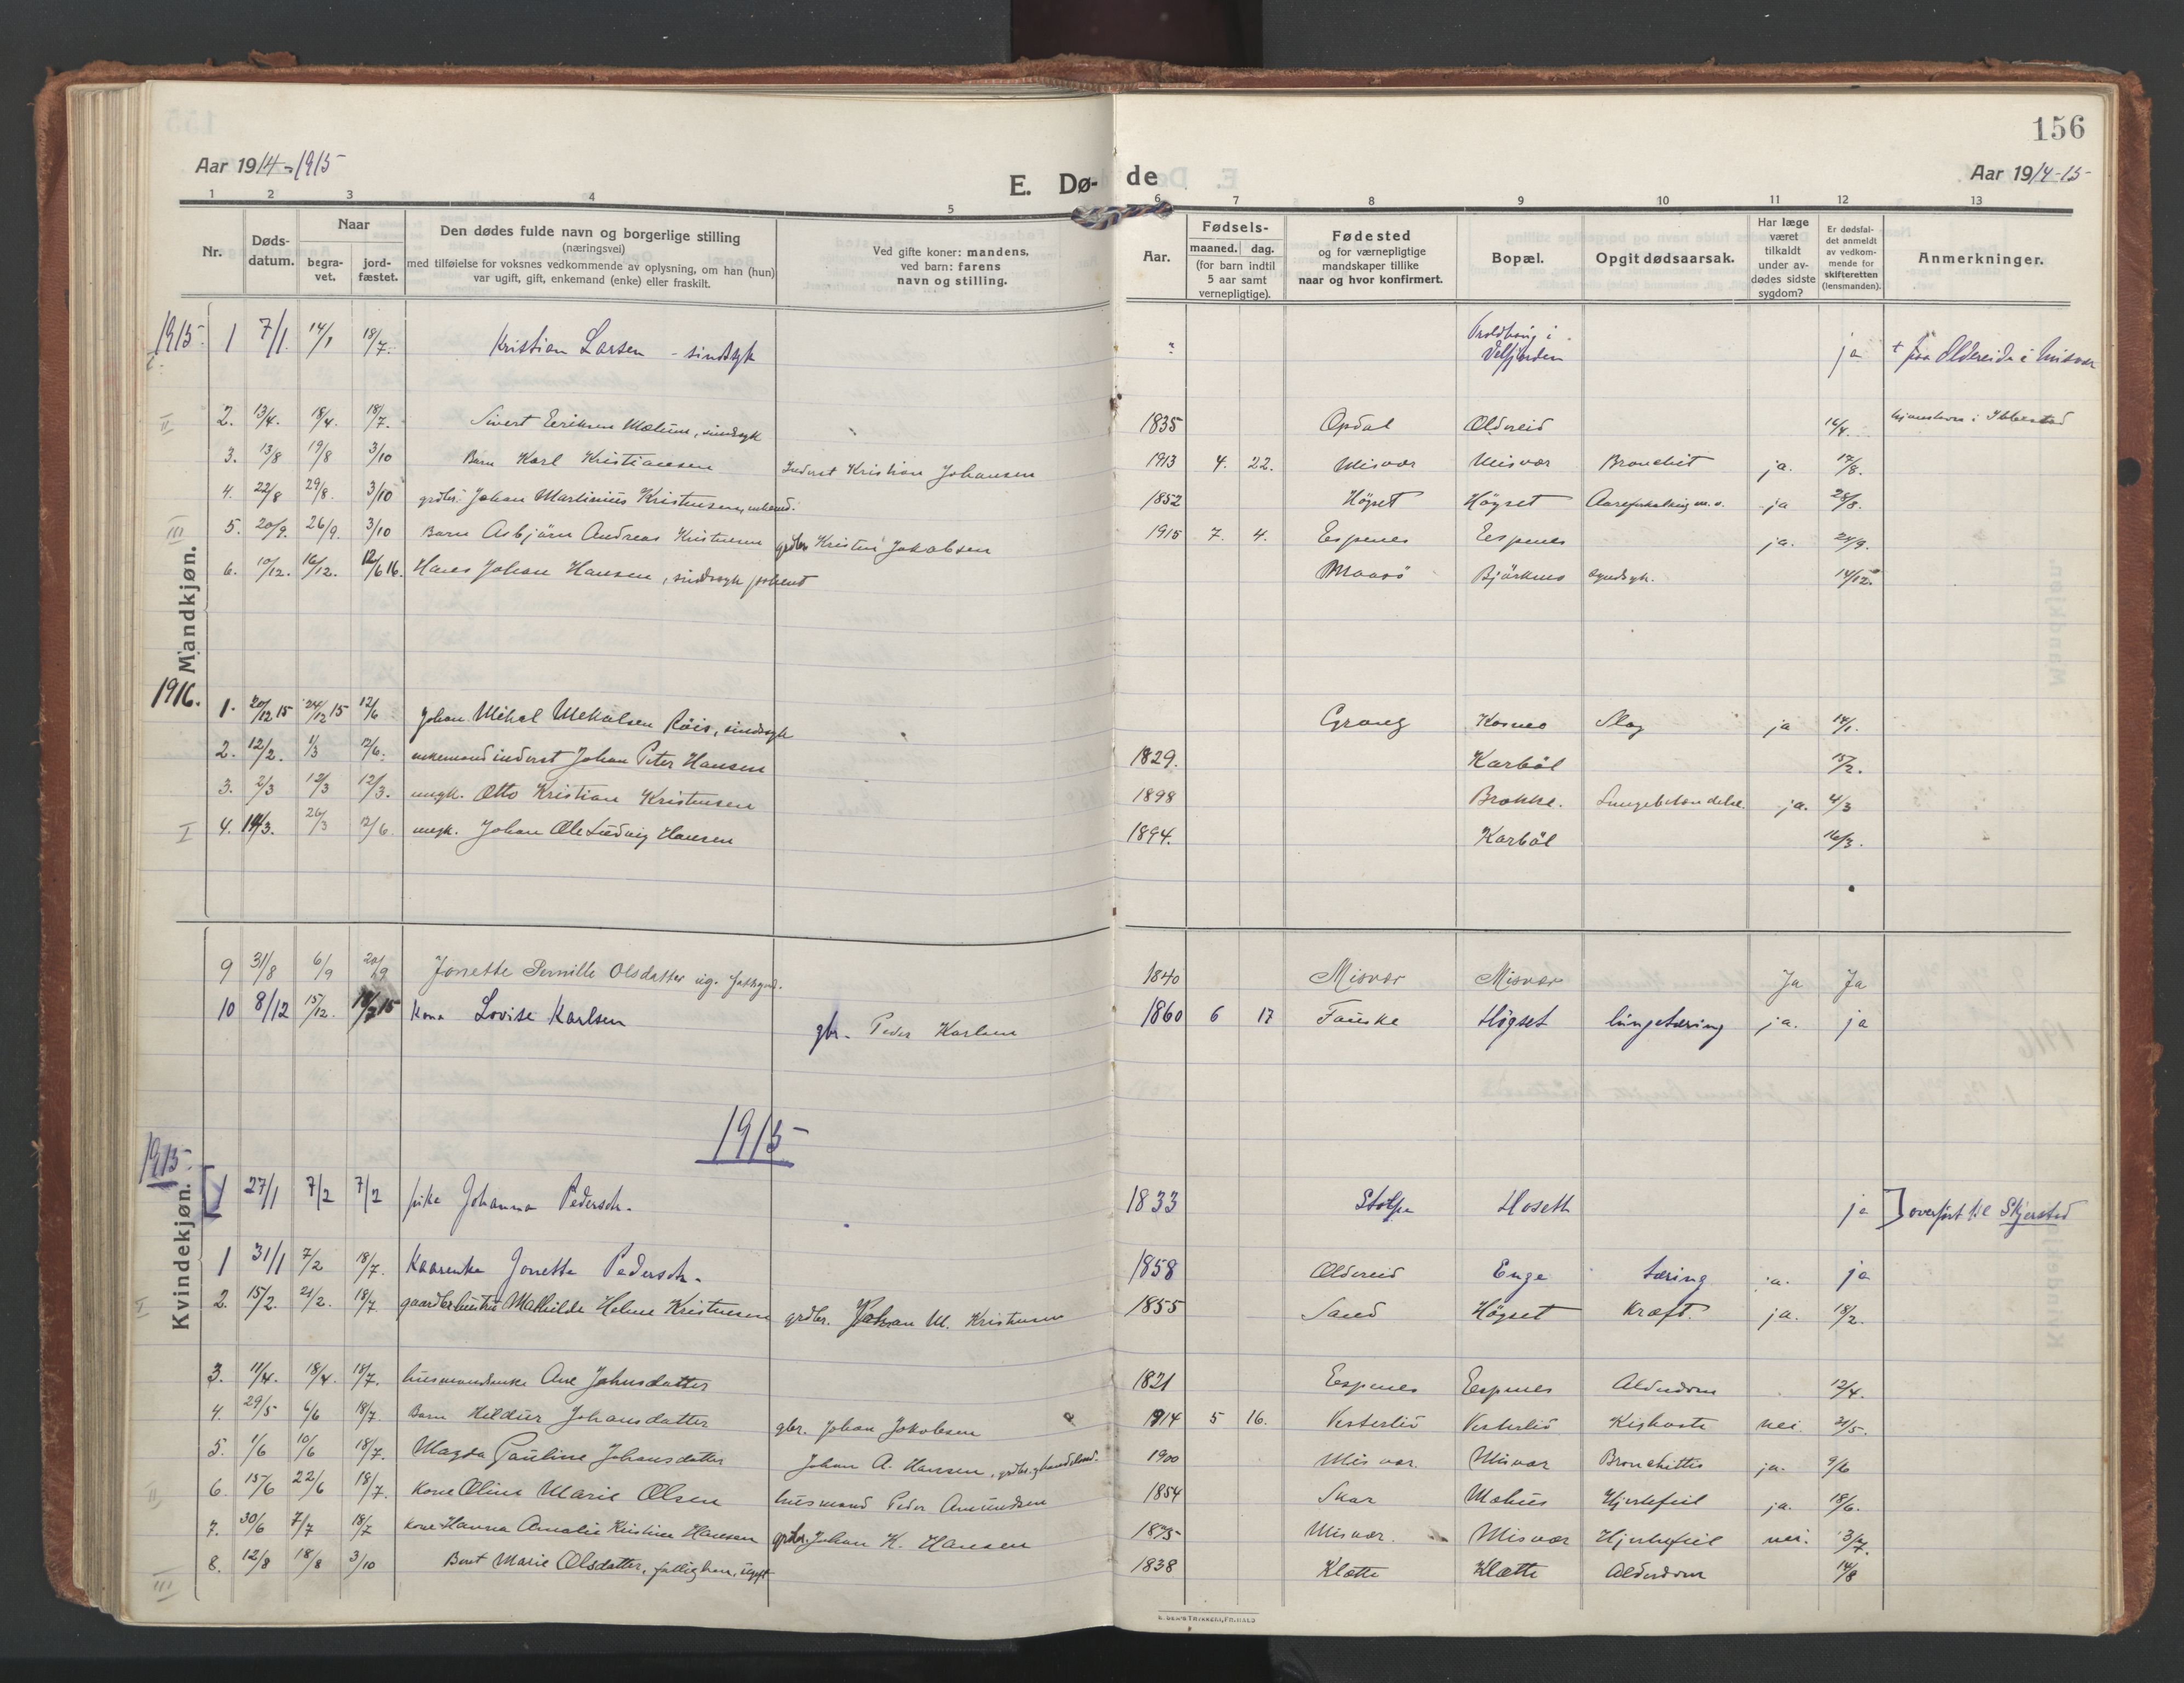 156
Aar 1914-1915
E. Dø- de
Aar 1914-15-
1 2 3 4 5 6 7 8 9 10 11 12 13
Nr.
Døds-datum.
Naar
begra-vet.
jord-fæstet.
Den dødes fulde navn og borgerlige stilling
(næringsvei)
med tilføielse for voksnes vedkommende av oplysning, om han (hun)
var ugift, gift, enkemand (enke) eller fraskilt.
Ved gifte koner: mandens,
ved barn: farens
navn og stilling.
Aar.
Fødsels-
maaned. dag.
(for barn indtil
5 aar samt
vernepligtige).
Fødested
og for værnepligtige
mandskaper tillike
naar og hvor konfirmert.
Bopæl.
Opgit dødsaarsak.
Har læge
været
tilkaldt
under av-
dødes sidste
sygdom?
Er dødsfal-
det anmeldt
av vedkom-
mende for
skifteretten
(lensmanden).
Anmerkninger.
Mandkjøn.
1915. 1 7/1. 14/1 18/7. Kristian Larsen - sindsyk Velfjorden ja
2. 13/4. 18/4. 18/7. Sivert Eriksen Mælum, sindsyk 1835 Opdal Oldereid 16/4.
3. 13/8 19/8 3/10 Barn Karl Kristiansen Inderst Kristian Johansen 1913 4. 22. Misvær Misvær Bronchit ja. 17/8.
4. 22/8 29/8. 3/10 grdbr. Johan Martinius Kristensen, enkemd. 1852 Högset Högset Aareforkalkning m.v. ja 28/8.
5. 20/9. 26/9. 3/10 Barn Asbjörn Andreas Kristensen grdbr. Kristen Jakobsen 1915 7. 4. Espenes Espenes ja. 24/9.
6. 10/12. 16/12. 12/6 16. Hans Johan Hansen, sindssyk patient Maasö Björknes 14/12.
1916.
1. 20/12 15 24/12 15 12/6 Johan Mikal Mekalsen Röis, sindssyk Grong Kosmo Slag ja 14/1.
2. 12/2. 1/3 12/6. enkemand inderst Johan Peter Hansen 1829. Karböl 15/2.
3. 2/3 12/3 12/3. ungk. Otto Kristian Kristensen 1898 Brokke. Lungebetændelse ja. 4/3
4. 14/3. 26/3 12/6. ungk. Johan Ole Ludvig Hansen 1894. Karböl 16/3.
9 31/8 6/9 20/9 Jonette Pernille Olsdatter ug. 1840 Misvær Misvær Ja Ja
10 8/12 15/12. 18/7 15 kona Lovise Karlsen gbr. Peder Karlsen 1860 6 17 Fauske Högset lungetæring ja. ja
1915
Kvindekjøn.
1915.
1 27/1 7/2 7/2 pike Johanna Pedersdr. 1833 Stolpe Hoseth ja overført til Skjerstad
1 31/1 7/2 18/7. Kaarenka Jonetta Pedersdr. 1858 Oldereid Enge tæring ja. ja
2. 15/2. 21/2. 18/7 gaardbr. hustru Mathilde Helene Kristensen grdbr. Johan M. Kristensen 1855 Sand Högset Kræft. ja. 18/2.
3. 11/4. 18/4. 18/7. husmandsenke Ane Johnsdatter 1821 Espenes Espenes Alderdom 12/4.
4. 29/5 6/6 18/7. Barn Hildur Johansdatter gbr. Johan Jakobsen 1914 5 16. Vesterlid Vesterlid Kighoste nei. 31/5.
5. 1/6 10/6 18/7. Magda Pauline Johansdatter Johan A. Hansen, grdbr. 1900 Misvær. Misvær Bronchittis ja. 9/6
6. 15/6 22/6 18/7. Kone Oline Marie Olsen husmand Peder Amundsen 1854 Skar Hjertefeil ja. 18/6.
7. 30/6 7/7 18/7 Kone Hanna Amalie Kristine Hansen grdbr. Johan K. Hansen 1875 Misvær. Misvær Hjertefeil nei. 3/7.
8. 12/8 18/8 3/10 Berit Marie Olsdatter, fattighem, ugift 1838 Klætte Klætte Alderdom 14/8